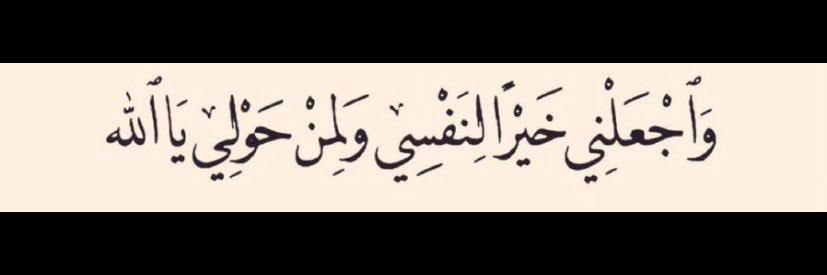 وَٱجْعَلْنِي خَيْرًا لِنَفْسِي وَلِمَنْ حَوْلِي يَا ٱللّٰه